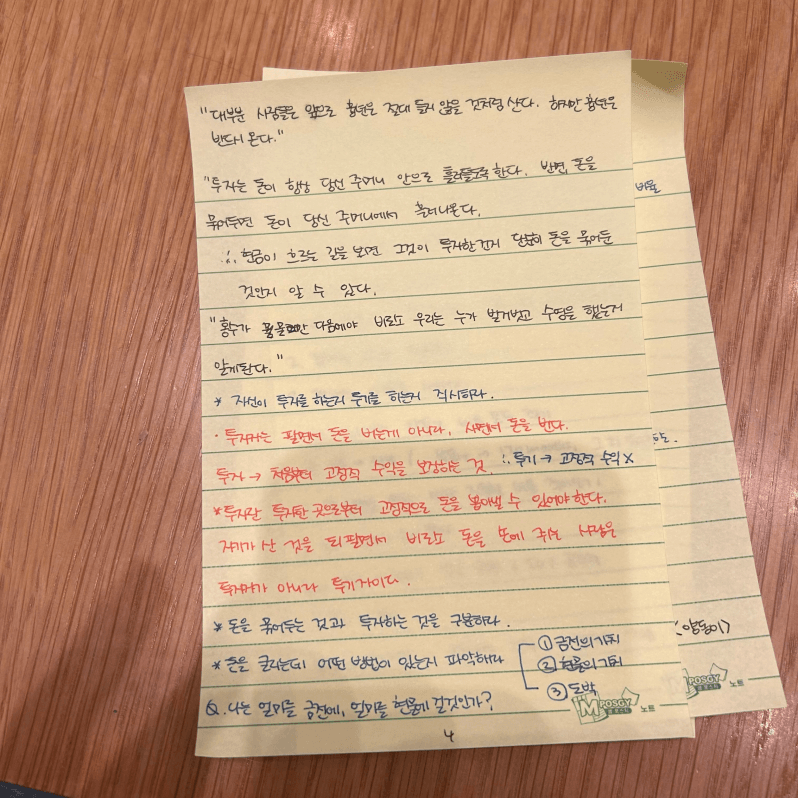 "대부분 사람들은 앞으로 흉년은 절대 들지 않을 것처럼 산다. 하지만 흉년은
반드시 온다."
"투자는 돈이 항상 당신 주머니 안으로 흘러들도록 한다. 반면, 돈을
묶어두면 돈이 당신 주머니에서 흘러나온다.
∴ 현금이 흐르는 길을 보면 그것이 투자한건지 단순히 돈을 묶어둔
것인지 알 수 있다.
"홍수가 다음에야 비로소 우리는 누가 발가벗고 수영을 했는지
알게된다."
* 자신이 투자를 하는지 투기를 하는지 직시하라.
· 투자자는 팔면서 돈을 버는게 아니라, 사면서 돈을 번다.
투자 → 처음부터 고정적 수익을 보장하는 것. ∴ 투기 → 고정적 수익 X
* 투자란 투자한 곳으로부터 고정적으로 돈을 뽑아낼 수 있어야 한다.
자기가 산 것을 되팔면서 비로소 돈을 손에 쥐는 사람은
투자자가 아니라 투기자이다.
* 돈을 묶어두는 것과 투자하는 것을 구분하라.
* 돈을 굴리는데 어떤 방법이 있는지 파악해라
① 금전의 가치
② 현물의 가치
③ 도박
Q. 나는 얼마를 금전에, 얼마를 현물에 걸것인가?
4
MPOSGY
노트
비율
<양동이>
MPOSGY
노트